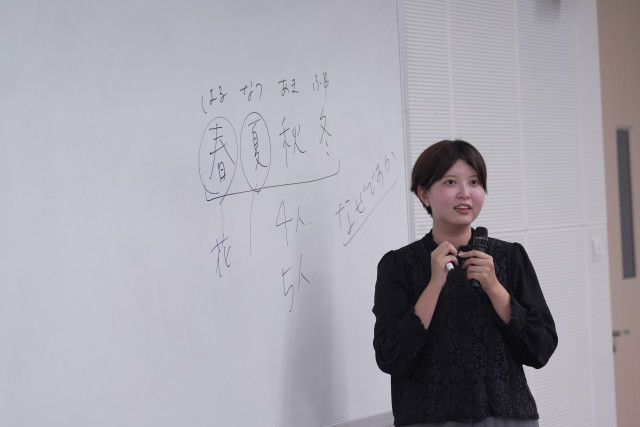 はる なつ あき ふゆ
春 夏 秋 冬
なぜですか
花
4人
5人